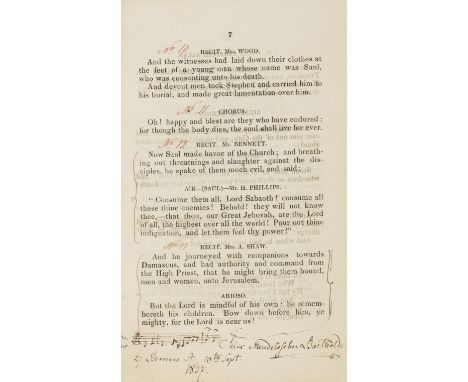 7
No 10
RECIT. Mrs. WOOD.
And the witnesses had laid down their clothes at
the feet of a young man whose name was Saul,
who was consenting unto his death.
And devout men took Stephen and carried him to
his burial, and made great lamentation over him.
No 11
CHORUS.
Oh! happy and blest are they who have endured:
for though the body dies, the soul shall live for ever.
No 12
RECIT. Mr. BENNETT.
Now Saul made havoc of the Church; and breath-
ing out threatnings and slaughter against the dis-
ciples, he spake of them much evil, and said:
AIR—(SAUL)—Mr. H. PHILLIPS.
“Consume them all, Lord Sabaoth! consume all
these thine enemies! Behold! they will not know
thee,—that thou, our Great Jehovah, art the Lord
of all, the highest over all the world! Pour out thine
indignation, and let them feel thy power!”
No 13
RECIT. Mrs. A. SHAW.
And he journeyed with companions towards
Damascus, and had authority and command from
the High Priest, that he might bring them bound,
men and women, unto Jerusalem.
ARIOSO.
But the Lord is mindful of his own: he remem-
bereth his children. Bow down before him, ye
mighty, for the Lord is near us!
Felix Mendelssohn Bartholdy
Berners St. 10th Sept.
1837